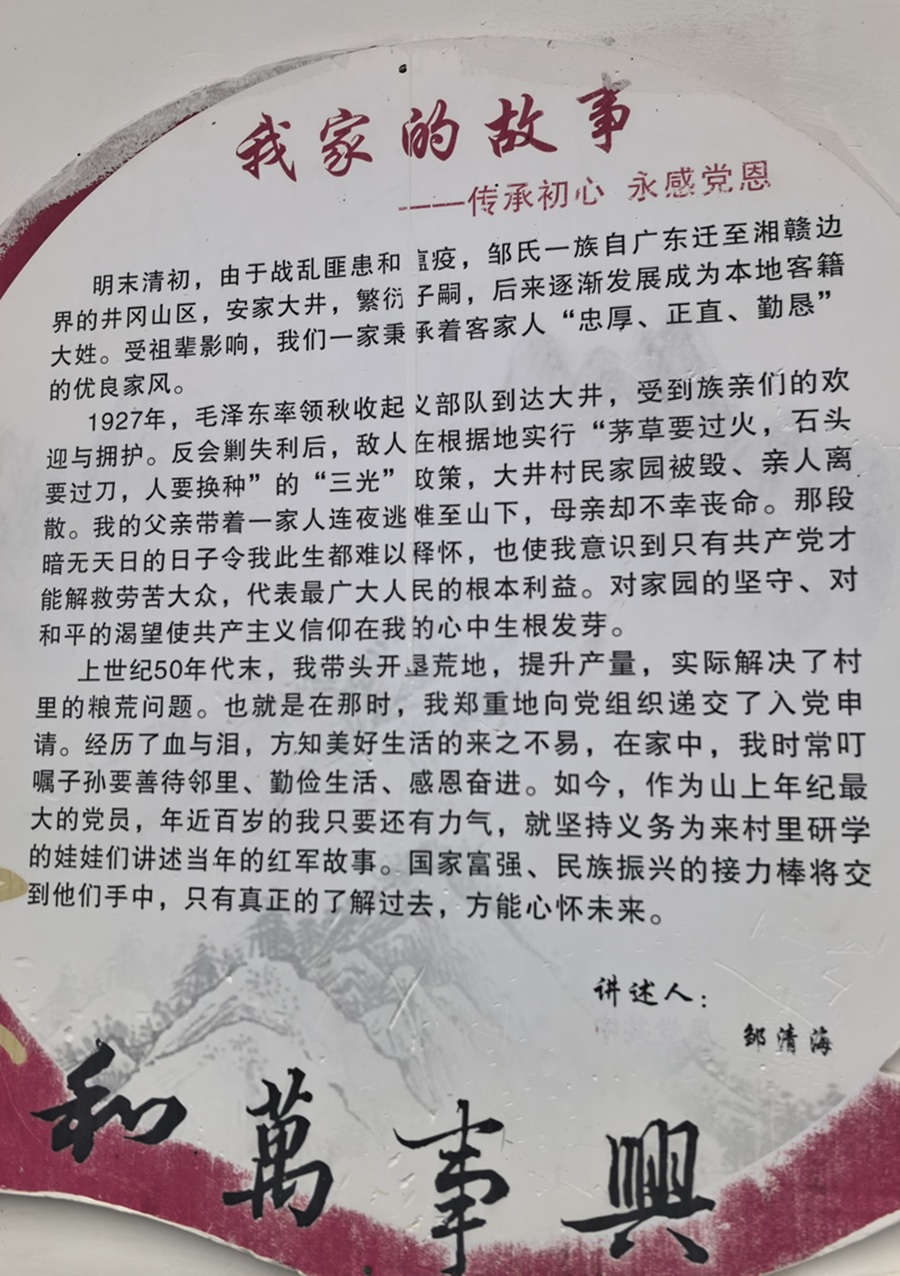 我家的故事
——传承初心 永感党恩
明末清初，由于战乱匪患和瘟疫，邹氏一族自广东迁至湘赣边
界的井冈山区，安家大井，繁衍子嗣，后来逐渐发展成为本地客籍
大姓。受祖辈影响，我们一家秉承着客家人“忠厚、正直、勤恳”
的优良家风。
1927年，毛泽东率领秋收起义部队到达大井，受到族亲们的欢
迎与拥护。反会剿失利后，敌人在根据地实行“茅草要过火，石头
要过刀，人要换种”的“三光”政策，大井村民家园被毁、亲人离
散。我的父亲带着一家人连夜逃难至山下，母亲却不幸丧命。那段
暗无天日的日子令我此生都难以释怀，也使我意识到只有共产党才
能解救劳苦大众，代表最广大人民的根本利益。对家园的坚守、对
和平的渴望使共产主义信仰在我的心中生根发芽。
上世纪50年代末，我带头开垦荒地，提升产量，实际解决了村
里的粮荒问题。也就是在那时，我郑重地向党组织递交了入党申
请。经历了血与泪，方知美好生活的来之不易，在家中，我时常叮
嘱子孙要善待邻里、勤俭生活、感恩奋进。如今，作为山上年纪最
大的党员，年近百岁的我只要还有力气，就坚持义务为来村里研学
的娃娃们讲述当年的红军故事。国家富强、民族振兴的接力棒将交
到他们手中，只有真正的了解过去，方能心怀未来。
讲述人：
邹清海
和萬事興